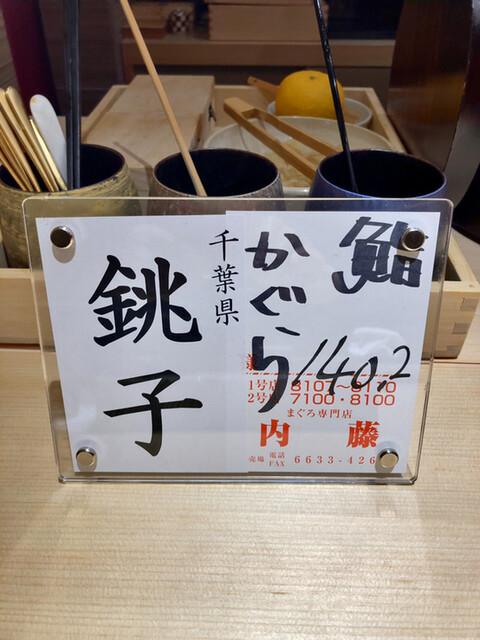 千葉県
銚子
鮨
かぐら
140.2
1号店 8107~8110
2号店 7100・8100
まぐろ専門店
内藤
売場 電話 FAX 6633-426